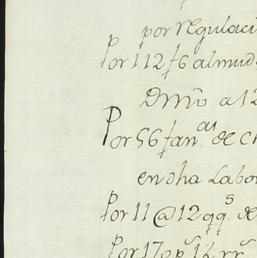 por regulaci
Por 112 f 6 almud
Dmº a 12
Por 56 fan.as de c
en dha Labo
Por 11 @ 12 qq.s de
Por 17